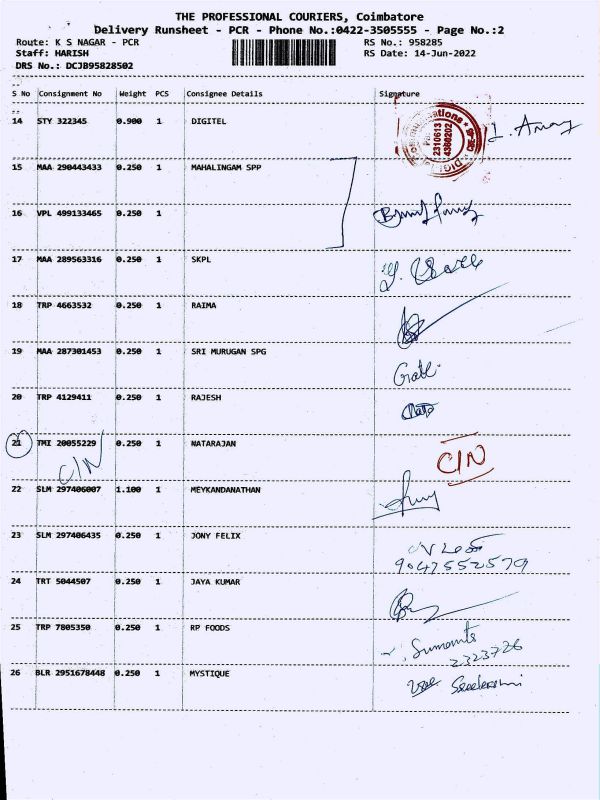 THE PROFESSIONAL COURIERS, Coimbatore
Delivery Runsheet - PCR - Phone No.:0422-3505555 - Page No.:2
Route: K S NAGAR - PCR RS No.: 958285
Staff: HARISH RS Date: 14-Jun-2022
DRS No.: DCJB95828502
S No Consignment No Weight PCS Consignee Details Signature
14 STY 322345 0.900 1 DIGITEL
2310613
4380202
15 MAA 290443433 0.250 1 MAHALINGAM SPP
16 VPL 499133465 0.250 1
17 MAA 289563316 0.250 1 SKPL
18 TRP 4663532 0.250 1 RAIMA
19 MAA 287301453 0.250 1 SRI MURUGAN SPG
20 TRP 4129411 0.250 1 RAJESH
21 TMI 20055229 0.250 1 NATARAJAN C/N
C/N
22 SLM 297406007 1.100 1 MEYKANDANATHAN
23 SLM 297406435 0.250 1 JONY FELIX
9047552579
24 TRT 5044507 0.250 1 JAYA KUMAR
25 TRP 7805350 0.250 1 RP FOODS
2323726
26 BLR 2951678448 0.250 1 MYSTIQUE